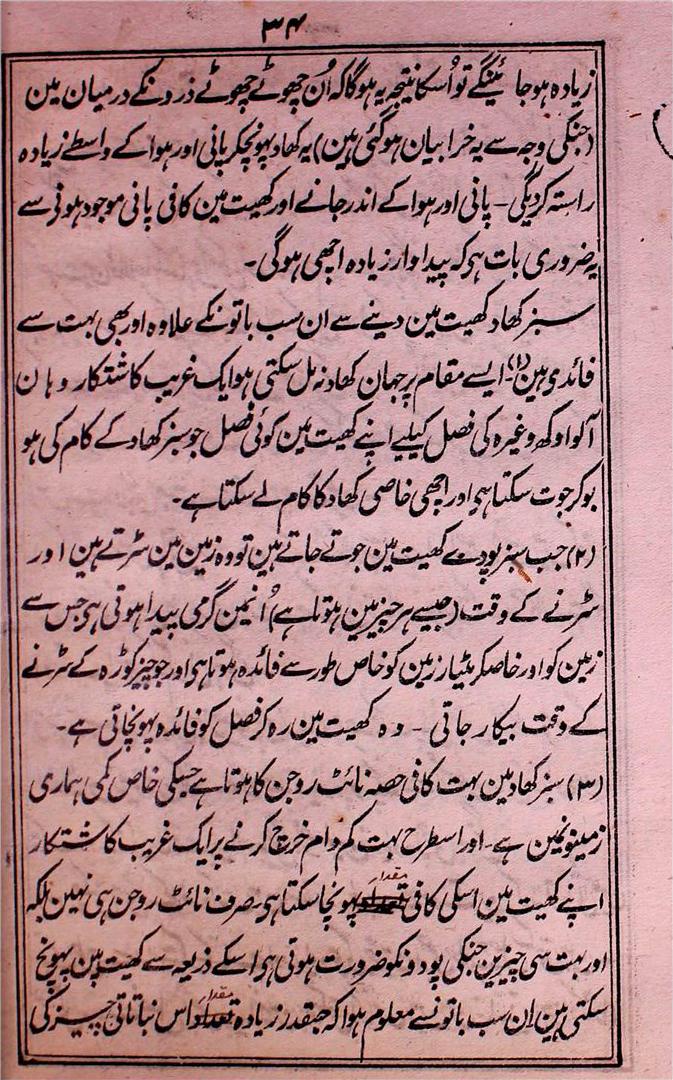 ۳۴
زیادہ ہوجائینگے تو اُسکا نتیجہ یہ ہوگا کہ اُن چھوٹے چھوٹے ذرونکے درمیان مین
(جنکی وجہ سے یہ خرابیان ہوگئی ہین) یہ کھاد پہونچکر پانی اور ہوا کے واسطے زیادہ
راستہ کردیگی ۔ پانی اور ہوا کے اندر جانے اور کھیت مین کافی پانی موجود ہونی سے
یہ ضروری بات ہی کہ پیداوار زیادہ اچھی ہوگی ۔
سبز کھاد کھیت مین دینے سے ان سب باتونکے علاوہ اور بھی بہت سے
فائدی ہین (۱) ۔ ایسے مقام پر جہان کھاد نہ مل سکتی ہو ایک غریب کاشتکار وہان
آلو اوکھ وغیرہ کی فصل کیلیے اپنے کھیت مین کوئی فصل جو سبز کھاد کے کام کی ہو
بوکر جوت سکتا ہی اور اچھی خاصی کھاد کا کام لے سکتا ہے ۔
(۲) جب سبز پودے کھیت مین جوتے جاتے ہین تو وہ زمین مین سڑتے ہین اور
سڑنے کے وقت (جیسے ہر چیز مین ہوتا ہے) اُنمین گرمی پیدا ہوتی ہی جس سے
زمین کو اور خاصکر مٹیار زمین کو خاص طور سے فائدہ ہوتا ہی اور جو چیز کوڑہ کے سڑنے
کے وقت بیکار جاتی ۔ وہ کھیت مین رہ کر فصل کو فائدہ پہونچاتی ہے ۔
(۳) سبز کھاد مین بہت کافی حصہ نائٹروجن کا ہوتا ہے جسکی خاص کمی ہماری
زمینونمین ہے ۔ اور اسطرح بہت کم دام خرچ کرنے پر ایک غریب کاشتکار
اپنے کھیت مین اسکی کافی مقدار پہونچا سکتا ہی ۔ صرف نائٹروجن ہی نہین بلکہ
اور بہت سی چیزین جنکی پودونکو ضرورت ہوتی ہی اسکے ذریعہ سے کھیت مین پہونچ
سکتی ہین ان سب باتونسے معلوم ہوا کہ جسقدر زیادہ تعداد مقدار اس نباتاتی چیز کی